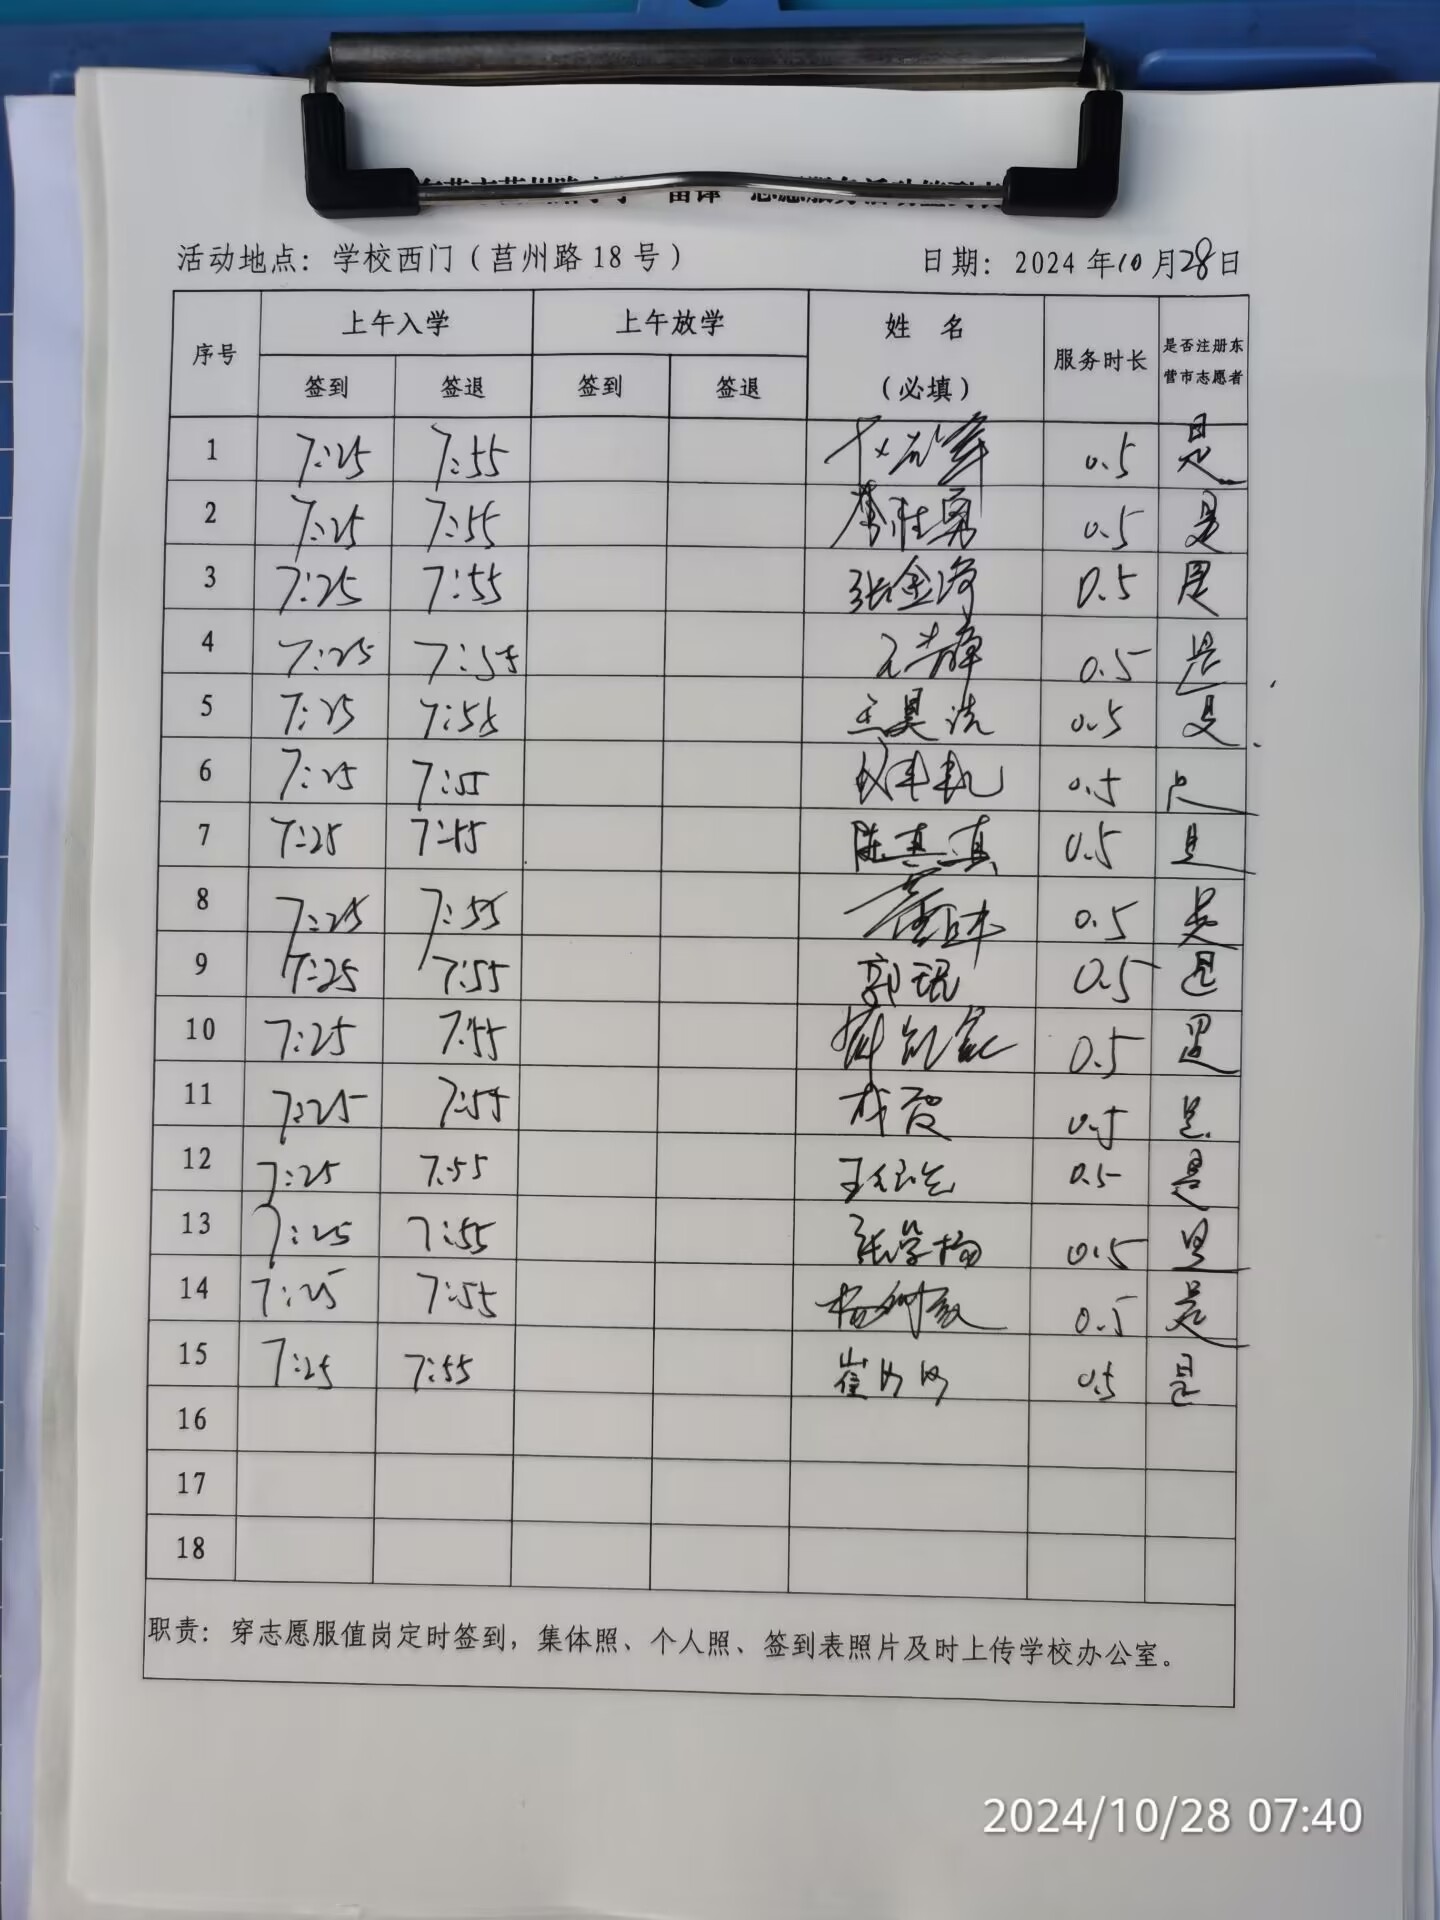 活动地点：学校西门（莒州路18号） 日期：2024年10月28日
序号 上午入学 上午放学 姓 名（必填） 服务时长 是否注册东营市志愿者
签到 签退 签到 签退
1 7:25 7:55 0.5 是
2 7:25 7:55 李胜勇 0.5 是
3 7:25 7:55 0.5 是
4 7:25 7:55 0.5 是
5 7:25 7:55 王昊 0.5 是
6 7:25 7:55 0.5 是
7 7:25 7:55 陈真真 0.5 是
8 7:25 7:55 0.5 是
9 7:25 7:55 郭琨 0.5 是
10 7:25 7:55 0.5 是
11 7:25 7:55 0.5 是
12 7:25 7:55 0.5 是
13 7:25 7:55 张学杨 0.5 是
14 7:25 7:55 0.5 是
15 7:25 7:55 崔 0.5 是
16
17
18
职责：穿志愿服值岗定时签到，集体照、个人照、签到表照片及时上传学校办公室。
2024/10/28 07:40